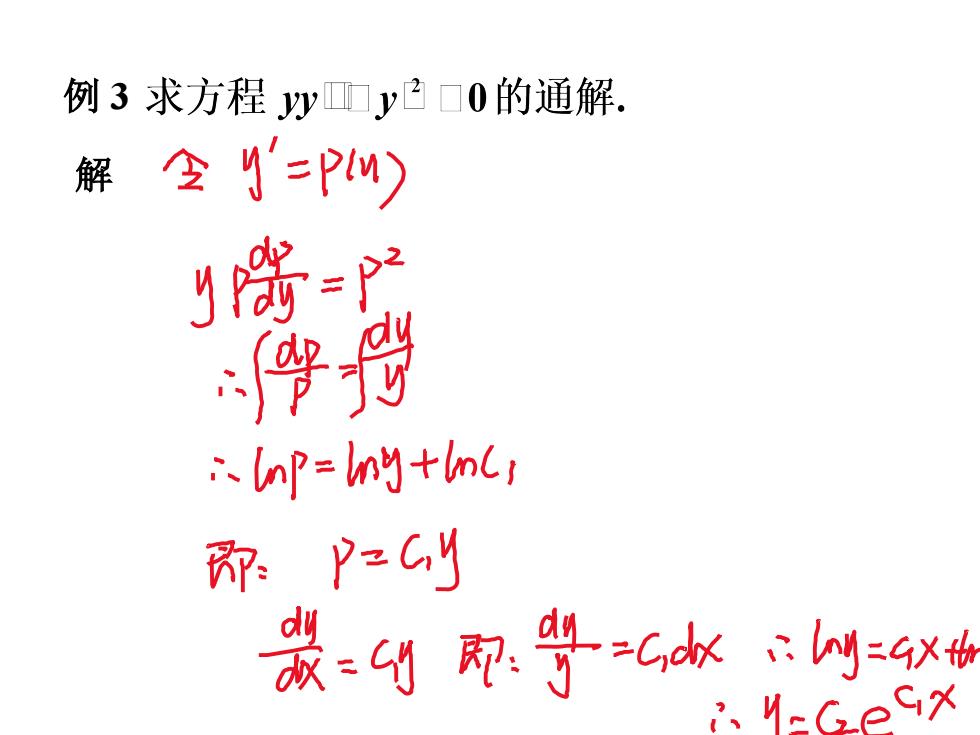 例 3 求方程 yy□□□y□² □0的通解.
解 令 y' = p(y)
y p dp/dy = p²
∴ ∫ dp/p = ∫ dy/y
∴ ln p = ln y + ln C₁
即: p = C₁y
dy/dx = C₁y 即: dy/y = C₁dx ∴ ln y = C₁x + ln
∴ y = C₂e^{C₁x}